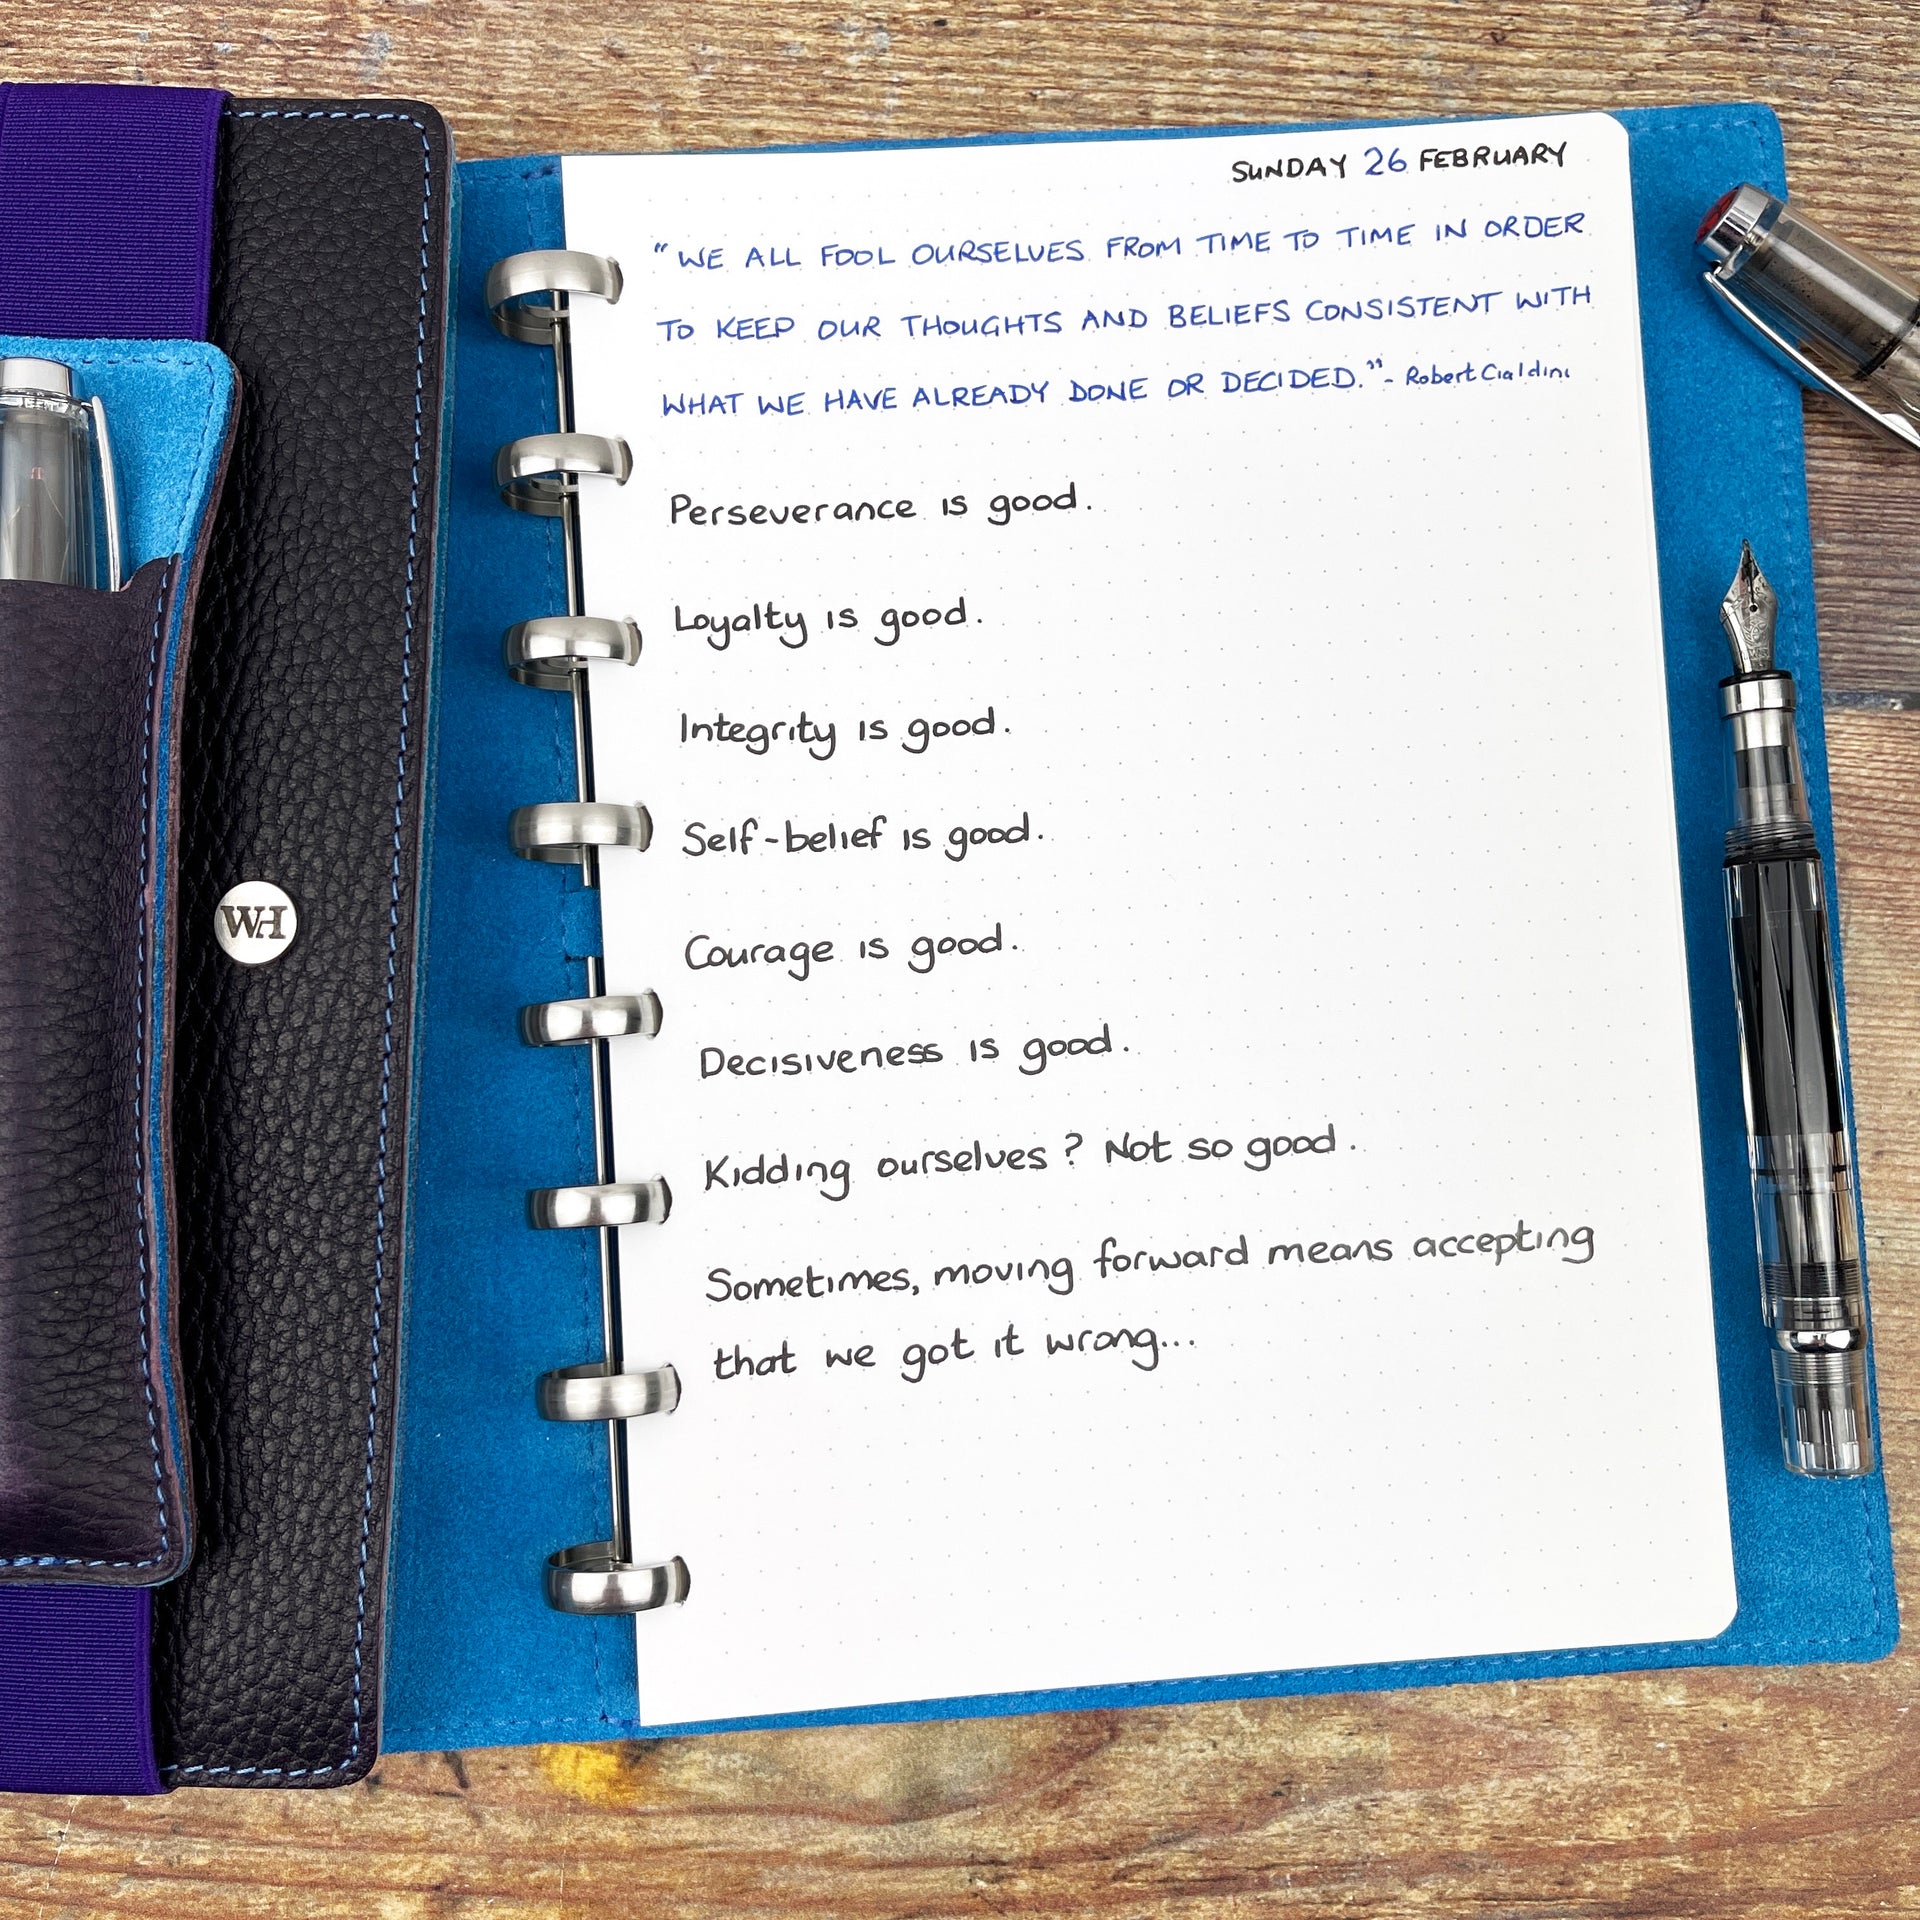 SUNDAY 26 FEBRUARY
"WE ALL FOOL OURSELVES FROM TIME TO TIME IN ORDER
TO KEEP OUR THOUGHTS AND BELIEFS CONSISTENT WITH
WHAT WE HAVE ALREADY DONE OR DECIDED." - Robert Cialdini
Perseverance is good.
Loyalty is good.
Integrity is good.
Self-belief is good.
Courage is good.
Decisiveness is good.
Kidding ourselves? Not so good.
Sometimes, moving forward means accepting
that we got it wrong...
WH